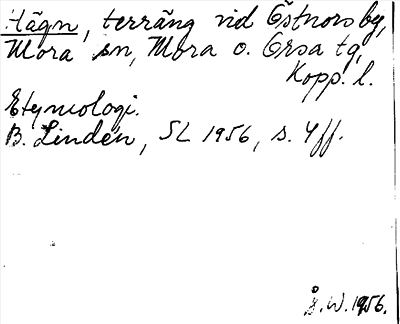 Hägn, terräng vid Östnors by,
Mora sn, Mora o. Orsa tg,
Kopp. l.
Etymologi.
B. Lindén, SL 1956, s. 4 ff.
S.W. 1956.